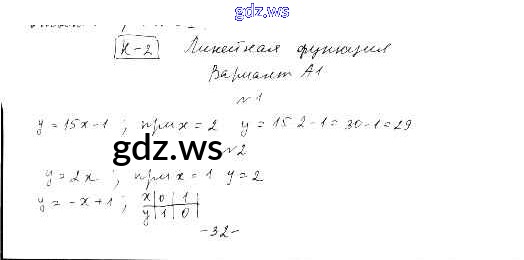 gdz.ws
К-2 Линейная функция
Вариант А1
№1
y = 15x-1 ; при x = 2 y = 15 2-1 = 30-1 = 29
gdz.ws
№2
y = 2x ; при x = 1 y = 2
y = -x+1 ; x 0 1
y 1 0
-32-